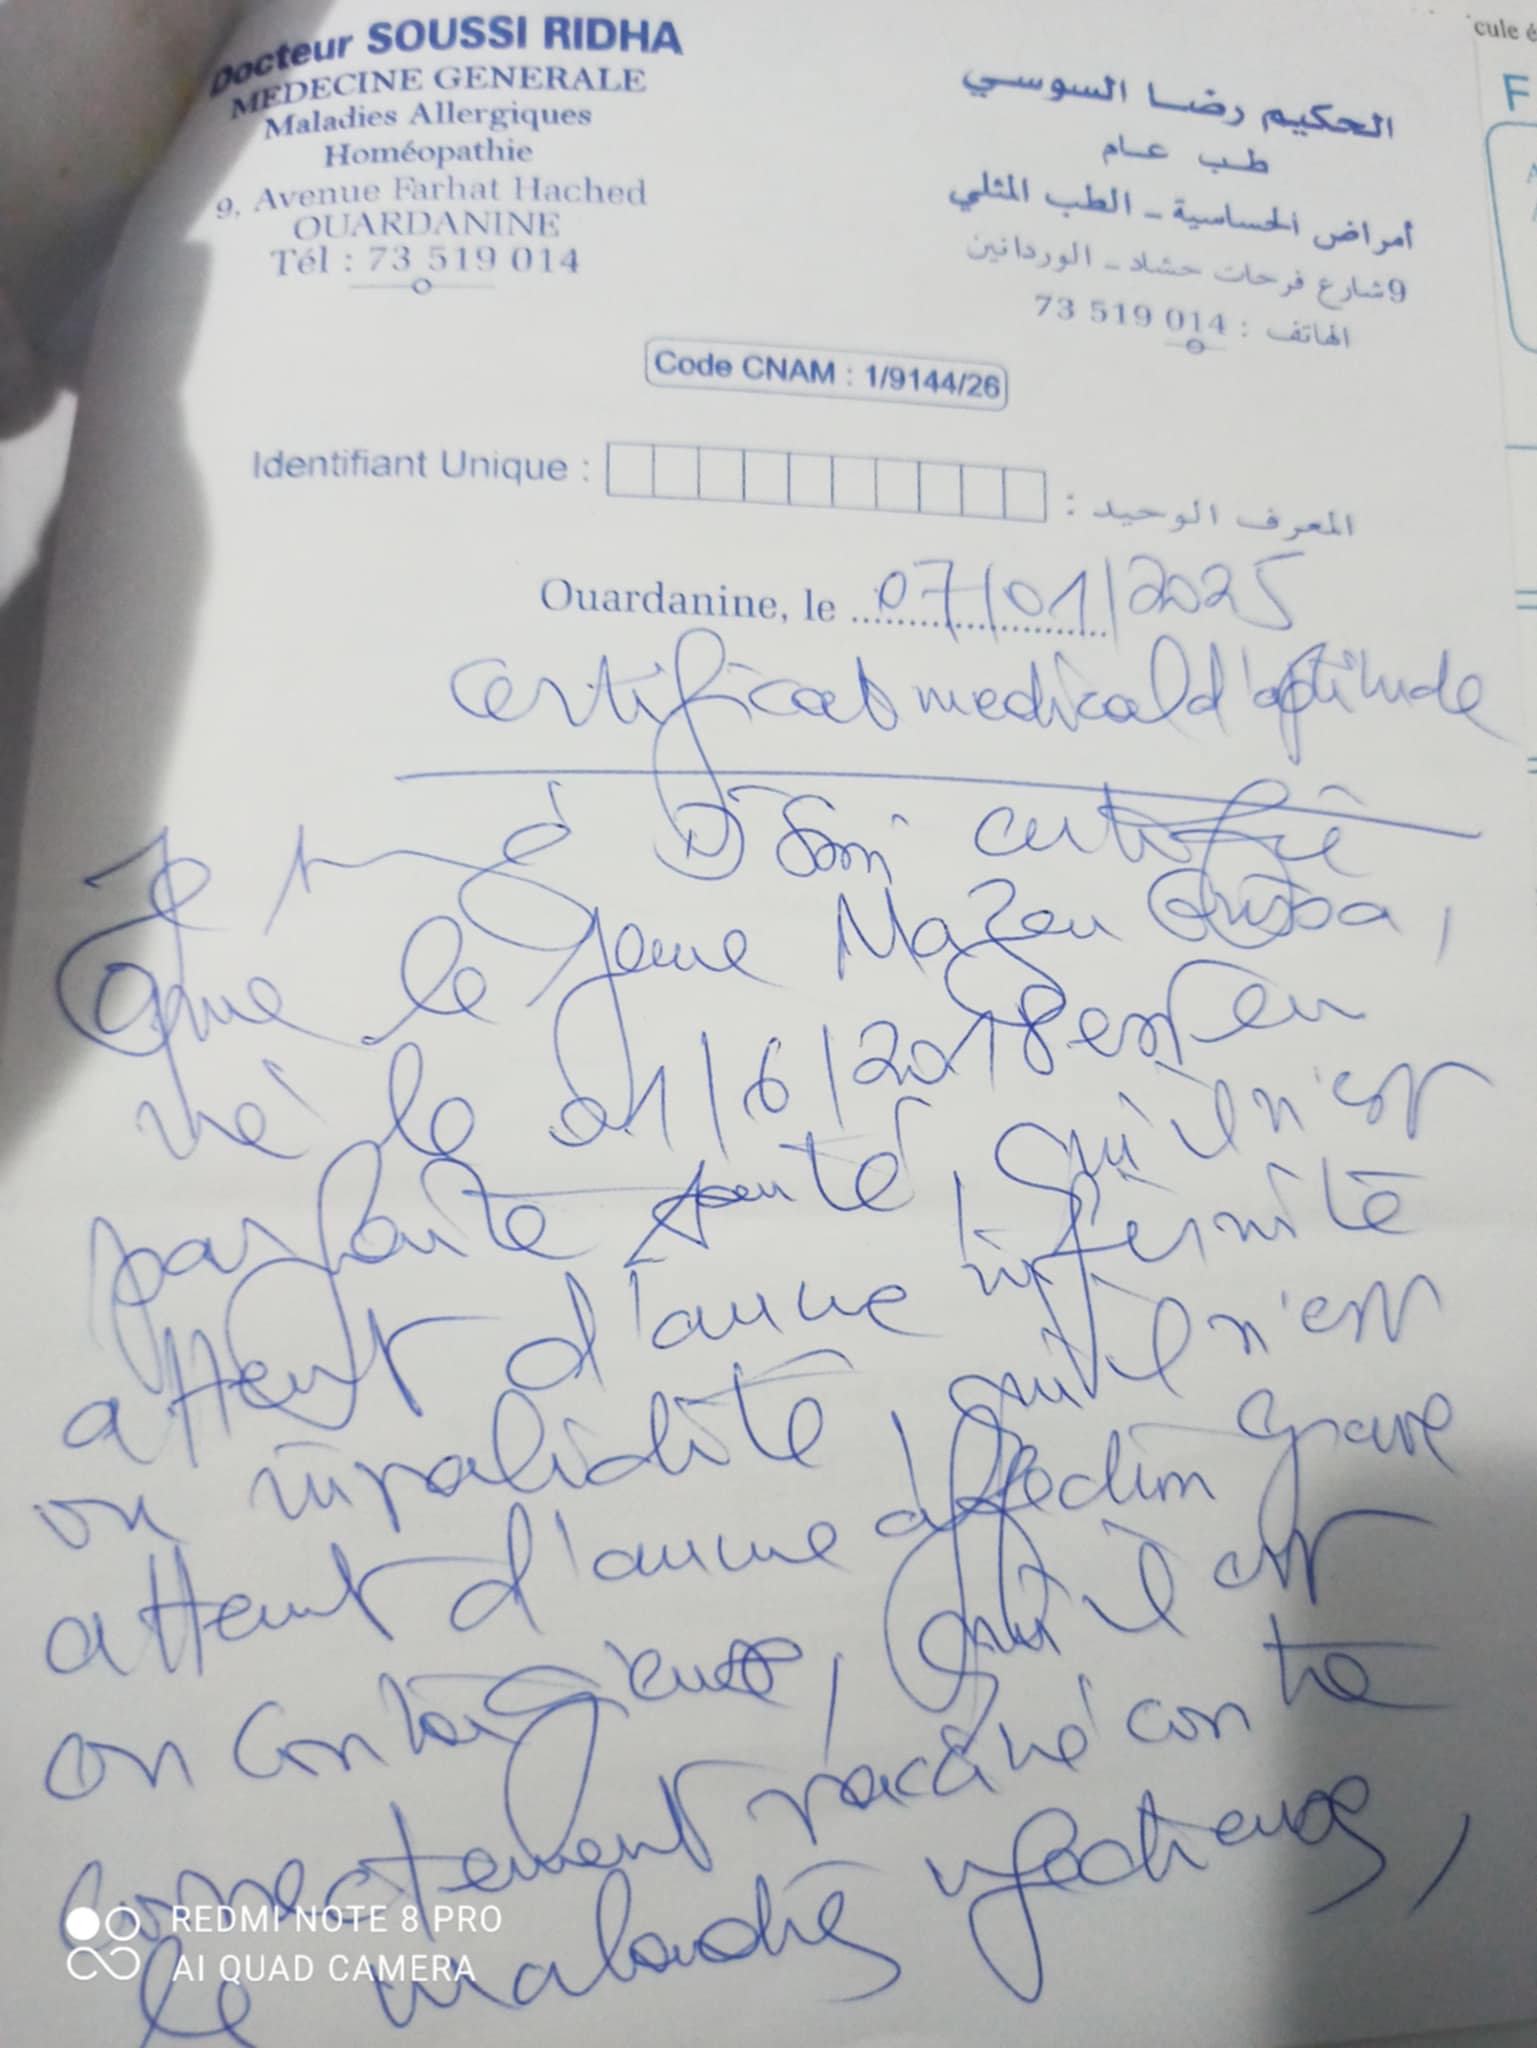 Docteur SOUSSI RIDHA
MEDECINE GENERALE
Maladies Allergiques
Homéopathie
9, Avenue Farhat Hached
OUARDANINE
Tél : 73 519 014
الحكيم رضا السوسي
طب عام
أمراض الحساسية - الطب المثلي
9 شارع فرحات حشاد - الوردانين
الهاتف : 73 519 014
cule é
F
Code CNAM : 1/9144/26
Identifiant Unique : المعرف الوحيد :
Ouardanine, le 07/01/2025
certificat medical d'aptitude
Je certifie
que le jeune Mazen
né le 01/6/2018 est en
parfaite santé, qu'il n'est
atteint d'aucune infirmité
ou invalidité, qu'il n'est
atteint d'aucune affection grave
ou contagieuse, qu'il est
correctement vacciné contre
le maladies infectieuses,
REDMI NOTE 8 PRO
AI QUAD CAMERA